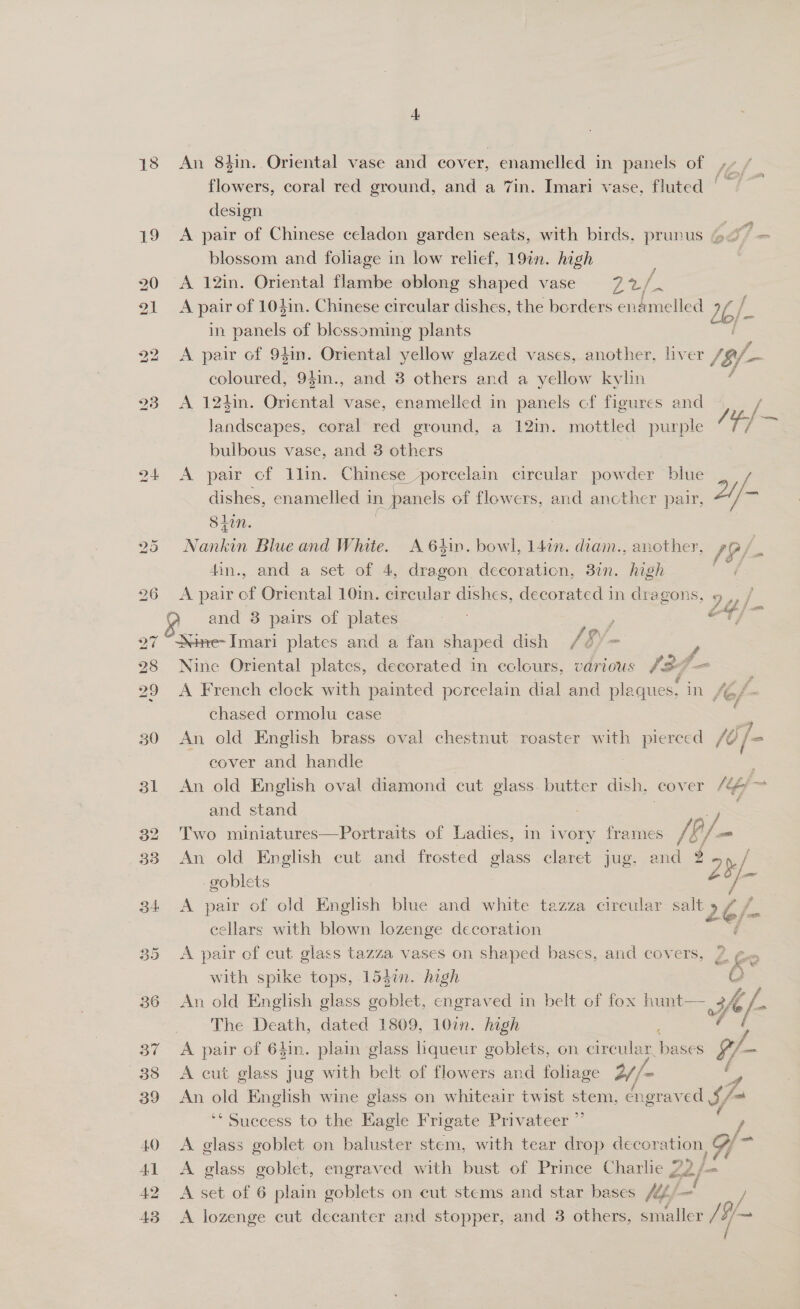 4
18 An 8½in. Oriental vase and cover, enamelled in panels of
flowers, coral red ground, and a 7in. Imari vase, fluted
design
19 A pair of Chinese celadon garden seats, with birds, prunus
blossom and foliage in low relief, 19in. high
20 A 12in. Oriental flambe oblong shaped vase 22/-
21 A pair of 10½in. Chinese circular dishes, the borders enamelled 26/-
in panels of blossoming plants
22 A pair of 9½in. Oriental yellow glazed vases, another, liver 18/-
coloured, 9½in., and 3 others and a yellow kylin
23 A 12½in. Oriental vase, enamelled in panels of figures and
landscapes, coral red ground, a 12in. mottled purple 14/-
bulbous vase, and 3 others
24 A pair of 11in. Chinese porcelain circular powder blue
dishes, enamelled in panels of flowers, and another pair, 21/-
8½in.
25 Nankin Blue and White. A 6½in. bowl, 14in. diam., another, 18/-
4in., and a set of 4, dragon decoration, 3in. high
26 A pair of Oriental 10in. circular dishes, decorated in dragons, 24/-
and 3 pairs of plates
27 Nine Imari plates and a fan shaped dish 18/-
28 Nine Oriental plates, decorated in colours, various
29 A French clock with painted porcelain dial and plaques, in 16/-
chased ormolu case
30 An old English brass oval chestnut roaster with pierced 10/-
cover and handle
31 An old English oval diamond cut glass butter dish, cover 14/-
and stand
32 Two miniatures—Portraits of Ladies, in ivory frames 18/-
33 An old English cut and frosted glass claret jug, and 2 28/-
goblets
34 A pair of old English blue and white tazza circular salt 26/-
cellars with blown lozenge decoration
35 A pair of cut glass tazza vases on shaped bases, and covers,
with spike tops, 15½in. high
36 An old English glass goblet, engraved in belt of fox hunt— 36/-
The Death, dated 1809, 10in. high
37 A pair of 6½in. plain glass liqueur goblets, on circular bases
38 A cut glass jug with belt of flowers and foliage 21/-
39 An old English wine glass on whiteair twist stem, engraved
“Success to the Eagle Frigate Privateer”
40 A glass goblet on baluster stem, with tear drop decoration
41 A glass goblet, engraved with bust of Prince Charlie 22/-
42 A set of 6 plain goblets on cut stems and star bases
43 A lozenge cut decanter and stopper, and 3 others, smaller 18/-